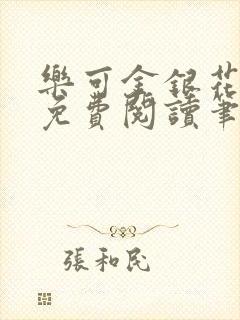 樂可金銀花
免費閱讀筆
張和民